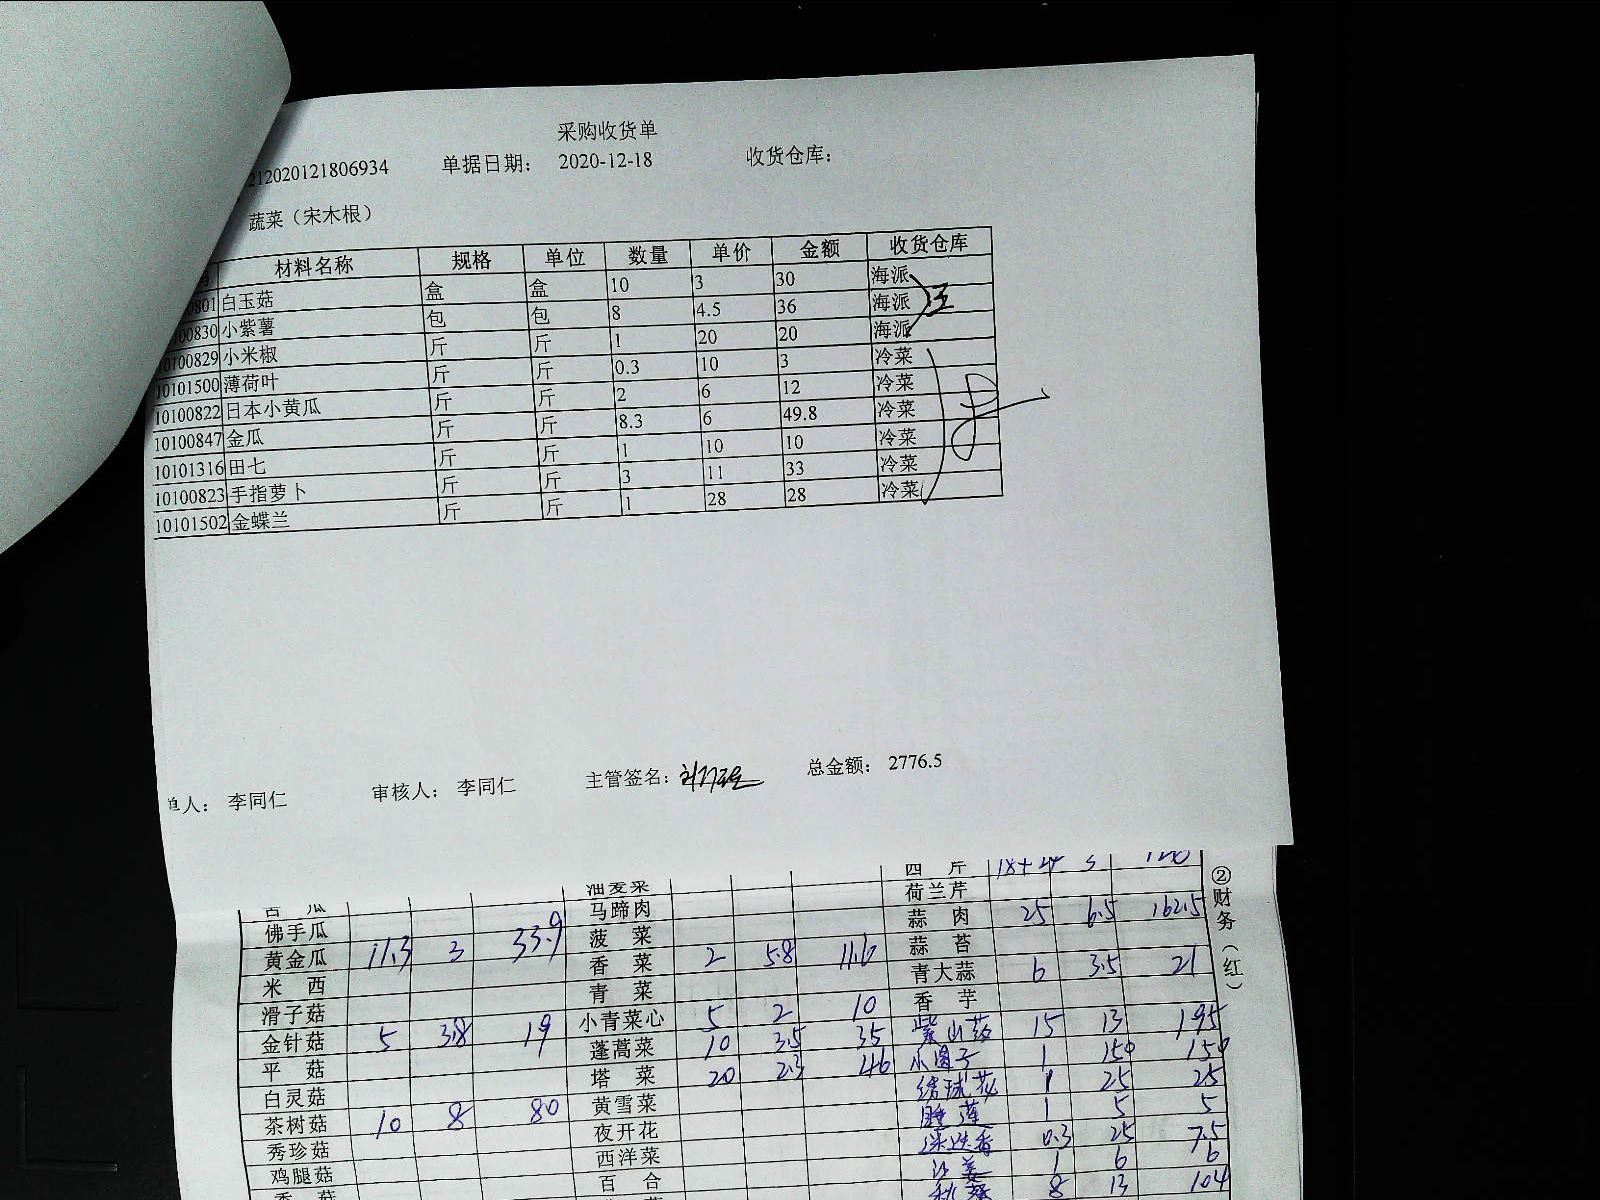 采购收货单
212020121806934 单据日期： 2020-12-18 收货仓库：
蔬菜（宋木根）
材料名称 规格 单位 数量 单价 金额 收货仓库
0801 白玉菇 盒 盒 10 3 30 海派
00830 小紫薯 包 包 8 4.5 36 海派
0100829 小米椒 斤 斤 1 20 20 海派
10101500 薄荷叶 斤 斤 0.3 10 3 冷菜
10100822 日本小黄瓜 斤 斤 2 6 12 冷菜
10100847 金瓜 斤 斤 8.3 6 49.8 冷菜
10101316 田七 斤 斤 1 10 10 冷菜
10100823 手指萝卜 斤 斤 3 11 33 冷菜
10101502 金蝶兰 斤 斤 1 28 28 冷菜
单人： 李同仁 审核人： 李同仁 主管签名： 总金额： 2776.5
苦瓜 油麦菜 西芹
佛手瓜 马蹄肉 荷兰芹
黄金瓜 11.3 3 33.9 菠菜 蒜肉 25 6.5 162.5
米西 香菜 2 5.8 11.6 蒜苔
滑子菇 青菜 青大蒜 6 3.5 21
金针菇 5 3.8 19 小青菜心 5 2 10 香芋
平菇 蓬蒿菜 10 3.5 35 紫山药 15 13 195
白灵菇 塔菜 20 2.3 46 小圆子 1 150 150
茶树菇 10 8 80 黄雪菜 绣球花 1 25 25
秀珍菇 夜开花 睡莲 1 5 5
鸡腿菇 西洋菜 迷迭香 0.3 25 7.5
香菇 百合 沙姜 1 6 6
8 13 104
②财务（红）